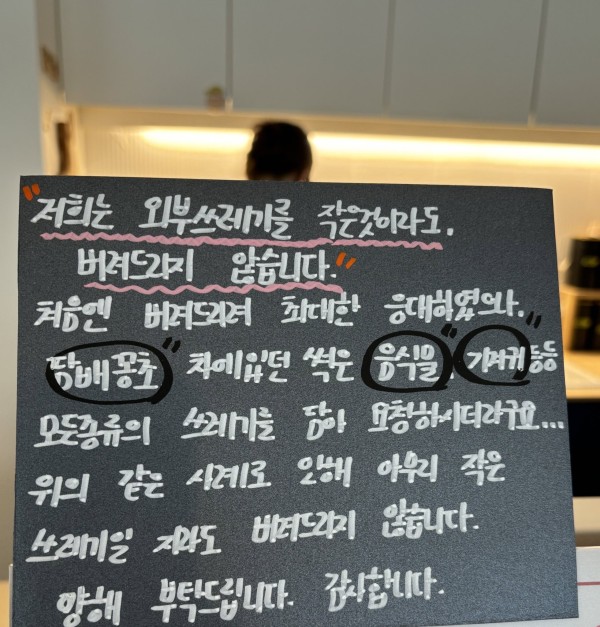 "저희는 외부쓰레기를 작은것이라도.
버려드리지 않습니다."
처음엔 버려드리려 최대한 응대하였으나.
"담배꽁초" 차에있던 썩은 "음식물". "기저귀"등등
모든종류의 쓰레기를 담아 요청하시더라구요...
위의 같은 사례로 인해 아무리 작은
쓰레기일 지라도 버려드리지 않습니다.
양해 부탁드립니다. 감사합니다.